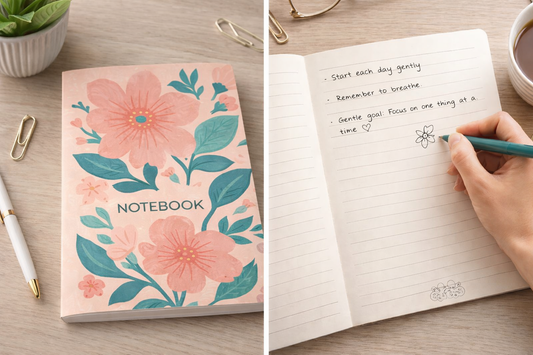 NOTEBOOK
· Start each day gently
· Remember to breathe
· Gentle goal: Focus on one thing at a
time ♡